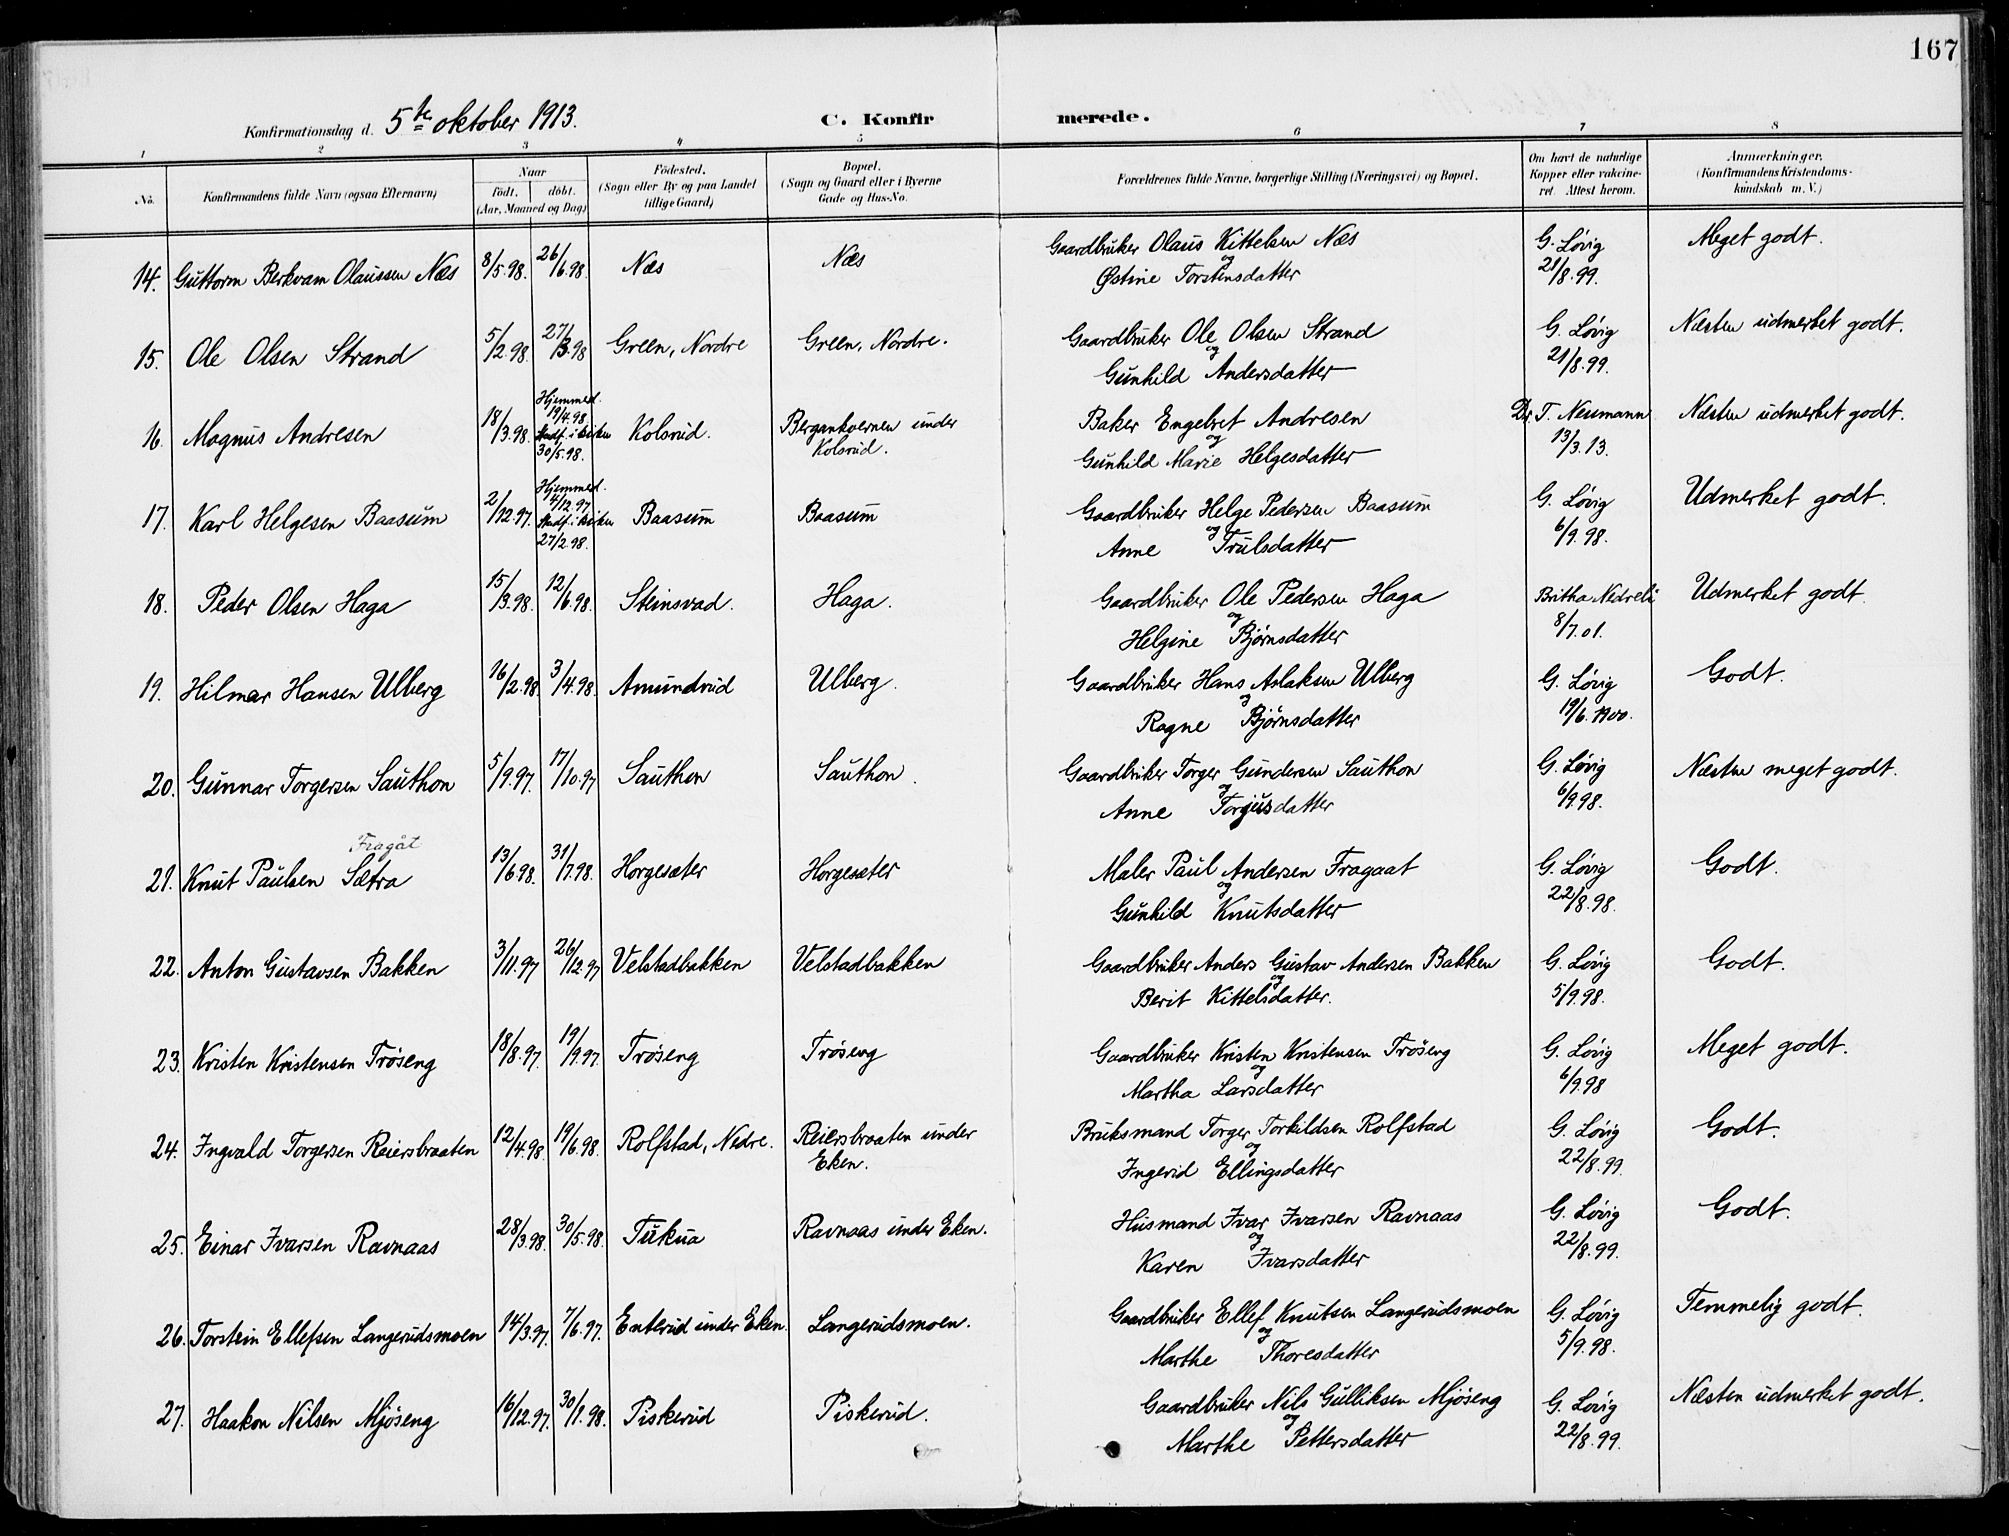 167
Konfirmationsdag d. 5te oktober 1913.
C. Konfirmerede.
1 2 3 4 5 6 7 8
No. Konfirmandens fulde Navn (ogsaa Efternavn)
Naar
født. døbt.
(Aar, Maaned og Dag)
Fødested.
(Sogn eller By og paa Landet
tillige Gaard)
Bopæl.
(Sogn og Gaard eller i Byerne
Gade og Hus-No.
Forældrenes fulde Navne, borgerlige Stilling (Næringsvei) og Bopæl.
Om havt de naturlige
Kopper eller vakcine-
ret. Attest herom.
Anmærkninger.
(Konfirmandens Kristendoms-
kundskab m. V.)
14. Guttorm Berkvam Olaussen Næs 8/5.98. 26/6.98. Næs Næs Gaardbruker Olaus Kittelsen Næs G. Løvig Meget godt.
og
Østine Torstensdatter 21/8.99.
15. Ole Olsen Strand 5/2.98. 27/3.98 Green, Nordre Green, Nordre. Gaardbruker Ole Olsen Strand G. Løvig Næsten udmerket godt.
og
Gunhild Andersdatter 21/8.99.
16. Magnus Andresen 18/3.98. Hjemmed. 19/4.98. Stadf. i kirken 30/5.98. Kolsrud. Bergankvernen under Kolsrud. Baker Engebret Andresen Dr. T. Neumann Næsten udmerket godt.
og
Gunhild Marie Helgesdatter 13/3.13.
17. Karl Helgesen Baasum 2/12.97. Hjemmed. 4/12.97 Stadf. i kirken 27/2.98. Baasum Baasum Gaardbruker Helge Pedersen Baasum G. Løvig Udmerket godt.
og
Anne Trulsdatter 6/9.98.
18. Peder Olsen Haga 15/3.98. 12/6.98. Steinsvad. Haga. Gaardbruker Ole Pedersen Haga Britha Nedreli Udmerket godt.
og
Helgine Bjørnsdatter 8/7.01.
19. Hilmar Hansen Ulberg 16/2.98. 3/4.98. Amundrud Ulberg. Gaardbruker Hans Aslaksen Ulberg G. Løvig Godt.
og
Ragne Bjørnsdatter 19/6.1900.
20. Gunnar Torgersen Sauthon 5/9.97. 17/10.97 Sauthon Sauthon. Gaardbruker Torger Gundersen Sauthon G. Løvig Næsten meget godt.
og
Anne Torjusdatter 6/9.98.
Fragåt
21. Knut Paulsen Sætra 13/6.98. 31/7.98. Horgesæter Horgesæter Maler Paul Andersen Fragaat G. Løvig Godt.
og
Gunhild Knutsdatter 22/8.98.
22. Anton Gustavsen Bakken 3/11.97 26/12.97 Velstadbakken Velstadbakken Gaardbruker Anders Gustav Andersen Bakken G. Løvig Godt.
og
Berit Kittelsdatter. 5/9.98.
23. Kristen Kristensen Trøseng 18/8.97. 19/9.97. Trøseng Trøseng Gaardbruker Kristen Kristensen Trøseng G. Løvig Meget godt.
og
Martha Larsdatter 6/9.98
24. Ingvald Torgersen Reiersbraaten 12/4.98. 19/6.98. Rolfstad, Nedre. Reiersbraaten under Eken. Bruksmand Torger Torkildsen Rolfstad G. Løvig Godt.
og
Ingerid Ellingsdatter 22/8.99.
25. Einar Ivarsen Ravnaas 28/3.98. 30/5.98. Tukua Ravnaas under Eken. Husmand Ivar Ivarsen Ravnaas G. Løvig Godt.
og
Karen Ivarsdatter 22/8.99.
26. Torstein Ellefsen Langerudsmoen 14/3.97. 7/6.97. Enterud under Eken. Langerudsmoen. Gaardbruker Ellef Knutsen Langerudsmoen G. Løvig Temmelig godt.
og
Marthe Thoresdatter 5/9.98.
27. Haakon Nilsen Mjøseng 16/12.97. 30/1.98. Piskerud Piskerud. Gaardbruker Nils Gulliksen Mjøseng G. Løvig Næsten udmerket godt.
og
Marthe Pettersdatter 22/8.99.